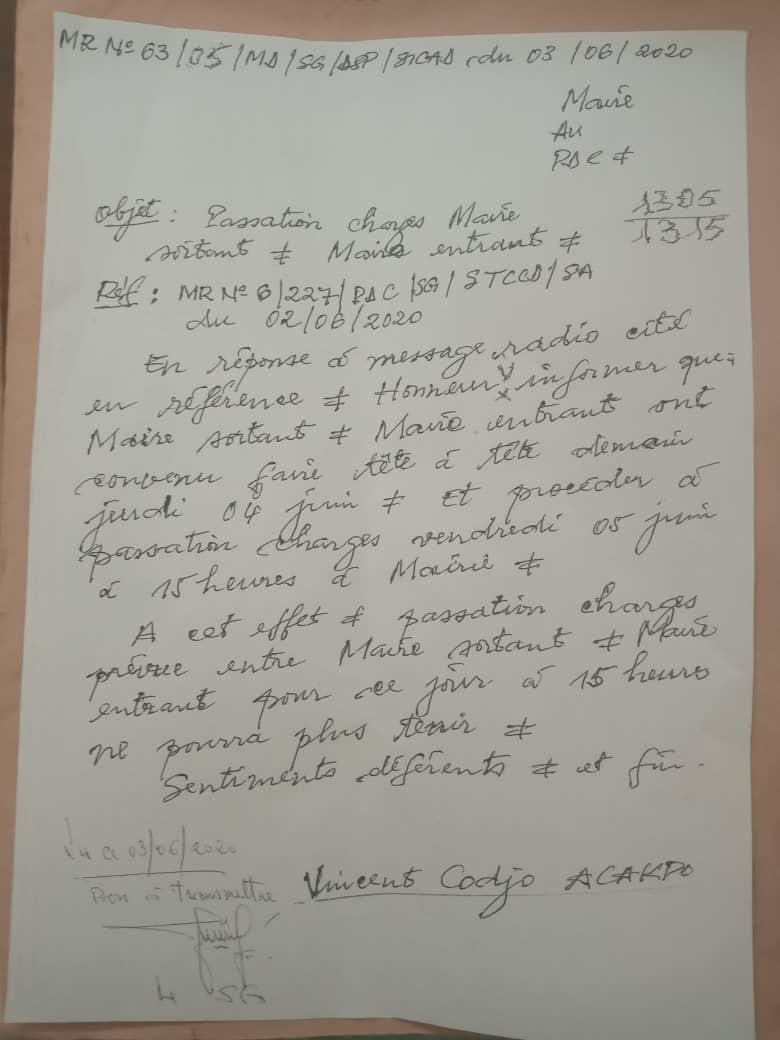 MR N° 63/035/MD/SG/DSP/SICAD du 03/06/2020
Maire
Au
PDC ≠
Objet : Passation charges Maire
sortant ≠ Maire entrant ≠
1305
1315
Réf : MR N° 6/227/PDC/SG/STCCD/SA
du 02/06/2020
En réponse à message radio cité
en référence ≠ Honneur informer que
Maire sortant ≠ Maire entrant ont
convenu faire tête à tête demain
jeudi 04 juin ≠ et procéder à
passation charges vendredi 05 juin
à 15 heures à Mairie ≠
A cet effet ≠ passation charges
prévue entre Maire sortant ≠ Maire
entrant pour ce jour à 15 heures
ne pourra plus tenir ≠
Sentiments déférents ≠ et fin.
Vu a 03/06/2020
Bon à transmettre
Vincent Codjo ACAKPO
Le SG